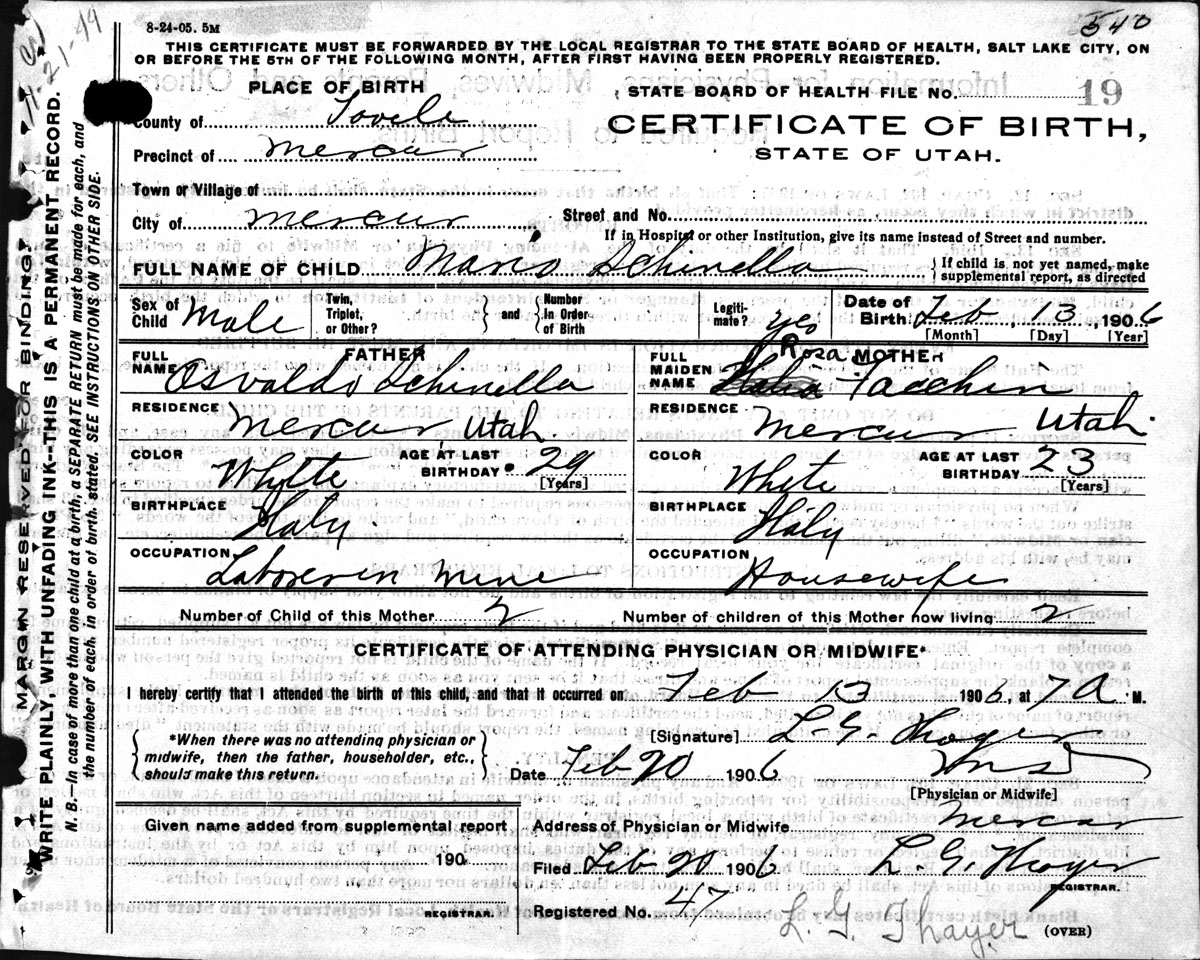 8-24-05. 5M
540
THIS CERTIFICATE MUST BE FORWARDED BY THE LOCAL REGISTRAR TO THE STATE BOARD OF HEALTH, SALT LAKE CITY, ON
OR BEFORE THE 5TH OF THE FOLLOWING MONTH, AFTER FIRST HAVING BEEN PROPERLY REGISTERED.
PLACE OF BIRTH
STATE BOARD OF HEALTH FILE NO. 19
County of Tooele
CERTIFICATE OF BIRTH,
Precinct of Mercur
STATE OF UTAH.
Town or Village of
City of Mercur
Street and No.
If in Hospital or other Institution, give its name instead of Street and number.
FULL NAME OF CHILD Mario Schinella
{ If child is not yet named, make
supplemental report, as directed
Sex of Child Male
Twin, Triplet, or Other?
} and {
Number In Order of Birth
Legiti- mate? yes
Date of Birth Feb, 13, 1906
[Month] [Day] [Year]
FATHER
FULL NAME Osvaldo Schinella
MOTHER
FULL MAIDEN NAME Rosa Italia Facchin
RESIDENCE Mercur Utah.
RESIDENCE Mercur Utah.
COLOR White
AGE AT LAST BIRTHDAY 29
[Years]
COLOR White
AGE AT LAST BIRTHDAY 23
[Years]
BIRTHPLACE Italy
BIRTHPLACE Italy
OCCUPATION Laborer in mine
OCCUPATION Housewife
Number of Child of this Mother 2
Number of children of this Mother now living 2
CERTIFICATE OF ATTENDING PHYSICIAN OR MIDWIFE*
I hereby certify that I attended the birth of this child, and that it occurred on Feb 13 1906, at 7 A M.
{ *When there was no attending physician or
midwife, then the father, householder, etc.,
should make this return. }
[Signature] L. G. Thayer
MD
Date Feb 20 1906
[Physician or Midwife]
Given name added from supplemental report
190
REGISTRAR.
Address of Physician or Midwife Mercur
Filed Feb 20 1906 L. G. Thayer
REGISTRAR.
Registered No. 47
L. G. Thayer
(OVER)
MARGIN RESERVED FOR BINDING
WRITE PLAINLY, WITH UNFADING INK--THIS IS A PERMANENT RECORD.
N. B.—In case of more than one child at a birth, a SEPARATE RETURN must be made for each, and
the number of each, in order of birth, stated. SEE INSTRUCTIONS ON OTHER SIDE.